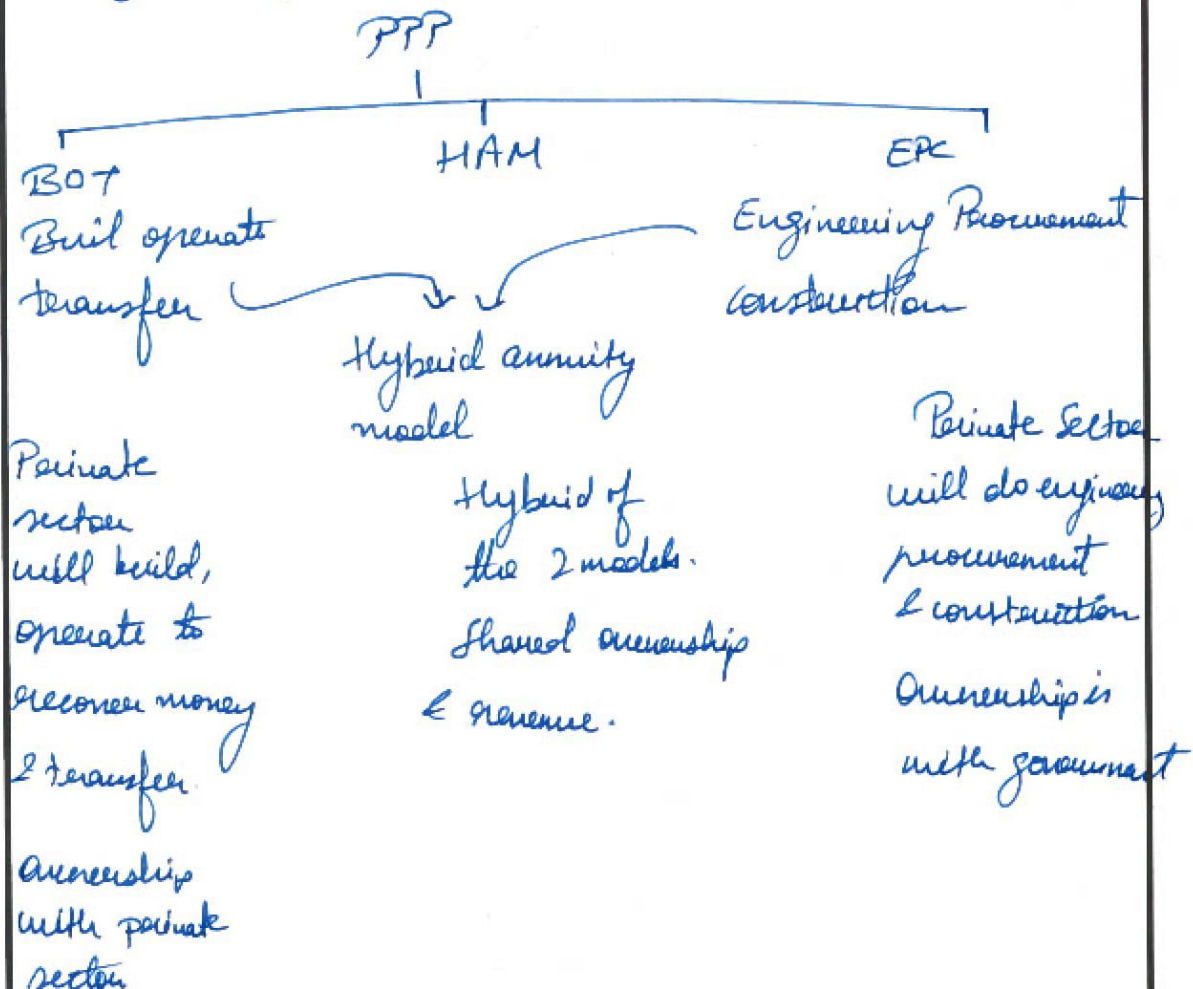 PPP
BOT
Buil operate
transfer
Private
sector
will build,
operate to
recover money
& transfer.
ownership
with private
sector
HAM
Hybrid annuity
model
Hybrid of
the 2 models.
Shared ownership
& revenue.
EPC
Engineering Procurement
construction
Private Sector
will do engineering
procurement
& construction
Ownership is
with government